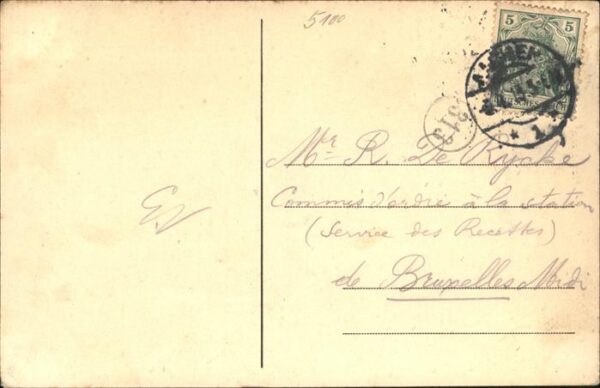 5100
5
5
313
Mr. R. De Rycke
Commis d'ordre à la station
(Service des Recettes)
de Bruxelles Midi
E.V
* 1